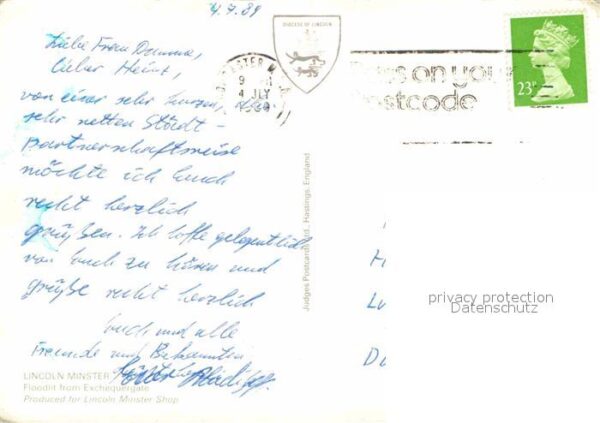 4.7.89
DIOCESE OF LINCOLN
4 JLY
Pass on your
Postcode
23P
Liebe Frau
lieber Heinz,
von einer sehr kurzen,
sehr netten Städt-
partnerschaftsreise
möchte ich Euch
recht herzlich
grüßen. Ich hoffe gelegentlich
von Euch zu hören und
grüße recht herzlich
Euch und alle
Freunde und Bekannten
LINCOLN MINSTER
Floodlit from Exchequergate
Produced for Lincoln Minster Shop
Judges Postcards Ltd., Hastings, England
privacy protection
Datenschutz